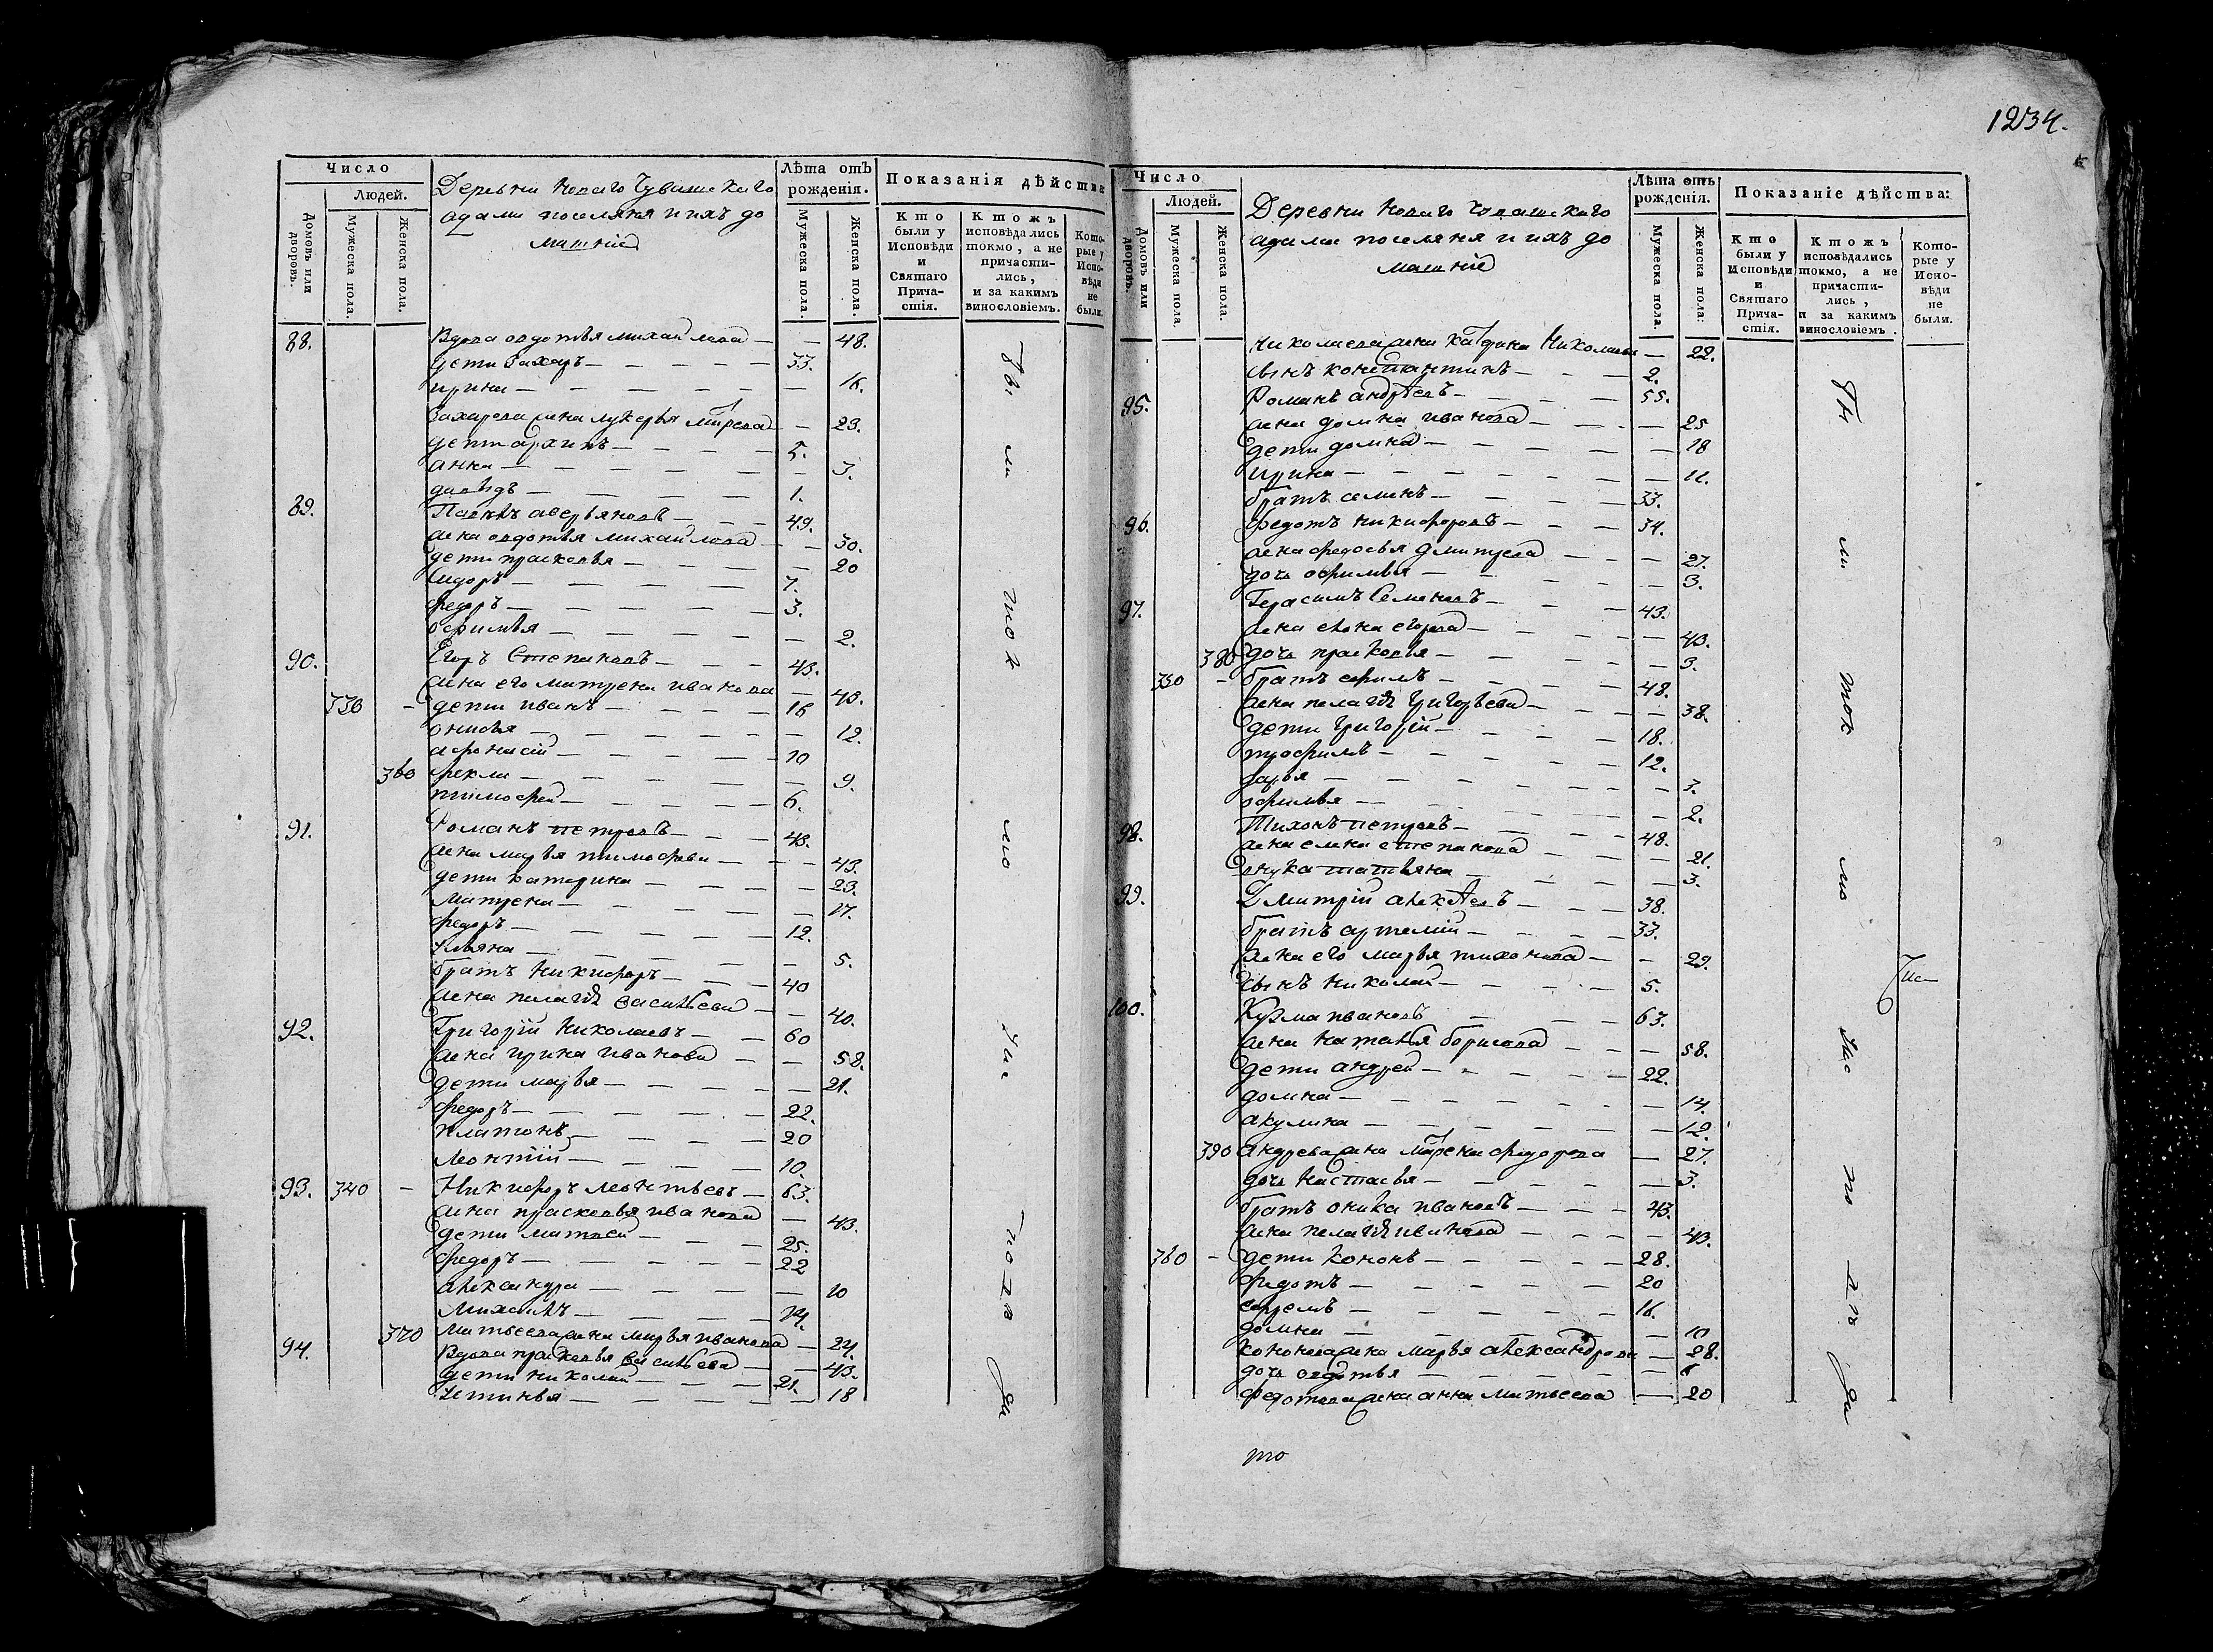 1234.
Число
Людей.
Домовъ или дворовъ.
Мужеска пола.
Женска пола.
Деревни Новаго Чувашскаго
адама поселяня и ихъ до
машніе
Лѣта отъ рожденія.
Мужеска пола.
Женска пола.
Показанія дѣйства
Кто были у Исповѣди и Святаго Причастія.
Ктожъ исповѣдались токмо, а не причастились, и за какимъ винословіемъ.
Которые у Исповѣди не были.
88. Вдова овдотья михайлова — — 48.
дети Захаръ — 33.
ирина — 16.
Захарова жена лукерья — 23.
дети архипъ — 5.
анна — 3.
давыдъ — 1.
89. Павелъ аверьяновъ — 49.
жена овдотья михайлова — 30.
дети прасковья — 20
Сидоръ — 7.
федоръ — 3.
офимья — 2.
90. Егоръ Степановъ — 43.
жена его матрена иванова — 43.
330 — дети иванъ — 16
онисья — 12.
афонасій — 10
360 фекла — 9.
тимофей — 6.
91. Романъ петровъ — 43.
жена марья тимофеева — 43.
дети катерина — 23.
матрена — 17.
федоръ — 12.
ульяна — 5.
братъ никифоръ — 40
жена пелагѣя васильева — 40.
92. Григорій Николаевъ — 60
жена ирина иванова — 58.
дети марья — 21.
федоръ — 22.
платонъ — 20
леонтій — 10.
93. 340 — Никифоръ леонтьевъ — 63.
жена прасковья иванова — 43.
дети матвей — 25.
федоръ — 22
александра — 10
михаилъ — 14.
370 матвеева жена марья иванова — 24.
94. Вдова прасковья васильева — 43.
дети николай — 21.
Устинья — 18
Число
Людей.
Домовъ или дворовъ.
Мужеска пола.
Женска пола.
Деревни Новаго Чувашскаго
адама поселяня и ихъ до
машніе
Лѣта отъ рожденія.
Мужеска пола.
Женска пола:
Показаніе дѣйства:
Кто были у Исповѣди и Святаго Причастія.
Ктожъ исповѣдались токмо, а не причастились, и за какимъ винословіемъ.
Которые у Исповѣди не были.
николаева жена Николаева — 22.
сынъ константинъ — 2.
95. Романъ андреевъ — 55.
жена домна иванова — 25
дети домна — 18
ирина — 11.
братъ семенъ — 33.
96. федотъ никифоровъ — 34.
жена федосья дмитрева — 27.
дочь офимья — 3.
97. Герасимъ Семеновъ — 43.
жена егорова — 43.
380 дочь прасковья — 3.
350 — братъ ефимъ — 48.
жена пелагѣя григорьева — 38.
дети григорій — 18.
трофимъ — 12.
дарья — 3.
офимья — 2.
98. Тихонъ петровъ — 48.
жена елена степанова — 21.
внука татьяна — 3.
99. Дмитрій алексеевъ — 38.
братъ артемій — 33.
жена его марья тихонова — 29.
сынъ николай — 5.
100. Кузма ивановъ — 63.
жена наталья борисова — 58.
дети андрей — 22.
домна — 14.
акулина — 12.
390 андреева жена федорова — 27.
дочь настасья — 3.
братъ оника ивановъ — 43.
жена пелагѣя иванова — 43.
360 — дети кононъ — 28.
федотъ — 20
ефремъ — 16.
домна — 10
кононова жена марья александрова — 28.
дочь овдотья — 6
федотова жена анна матвеева — 20
то